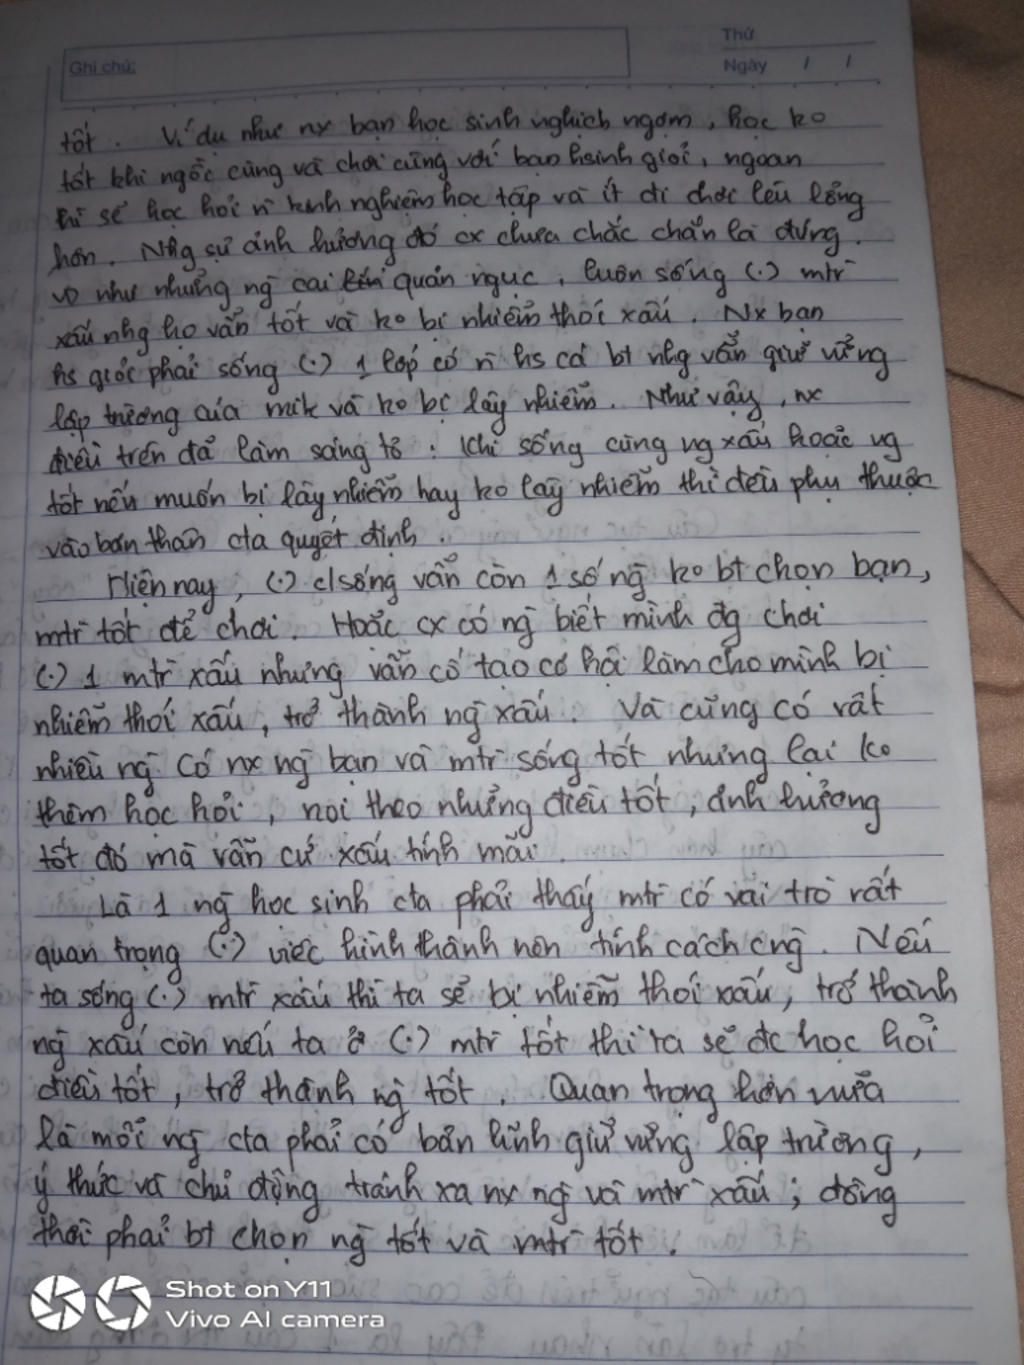 Thứ
Ghi chú:
Ngày / /
tốt. Ví dụ như nx bạn học sinh nghịch ngợm, học ko
tốt khi ngồi cùng và chơi cùng với bạn hsinh giỏi, ngoan
thì sẽ học hỏi n kinh nghiệm học tập và ít đi chơi lêu lổng
hơn. Nhg sự ảnh hưởng đó cx chưa chắc chắn là đúng.
VD như những ng cai quản ngục, luôn sống (.) mtr
xấu nhg họ vẫn tốt và ko bị nhiễm thói xấu. Nx bạn
hs giỏi phải sống (.) 1 lớp có n hs cá bt nhg vẫn giữ vững
lập trường của mik và ko bị lây nhiễm. Như vậy, nx
điều trên đã làm sáng tỏ: Khi sống cùng ng xấu hoặc ng
tốt nếu muốn bị lây nhiễm hay ko lây nhiễm thì đều phụ thuộc
vào bản thân cta quyết định.
Hiện nay, (.) c/sống vẫn còn 1 số ng ko bt chọn bạn,
mtr tốt để chơi. Hoặc cx có ng biết mình đg chơi
(.) 1 mtr xấu nhưng vẫn cố tạo cơ hội làm cho mình bị
nhiễm thói xấu, trở thành ng xấu. Và cũng có rất
nhiều ng có nx ng bạn và mtr sống tốt nhưng lại ko
thèm học hỏi, noi theo những điều tốt, ảnh hưởng
tốt đó mà vẫn cứ xấu tính mãi.
Là 1 ng học sinh cta phải thấy mtr có vai trò rất
quan trọng (.) việc hình thành nên tính cách cng. Nếu
ta sống (.) mtr xấu thì ta sẽ bị nhiễm thói xấu, trở thành
ng xấu còn nếu ta ở (.) mtr tốt thì ta sẽ đc học hỏi
điều tốt, trở thành ng tốt. Quan trọng hơn nữa
là mỗi ng cta phải có bản lĩnh giữ vững lập trường,
ý thức và chủ động tránh xa nx ng và mtr xấu; đồng
thời phải bt chọn ng tốt và mtr tốt.
Shot on Y11
Vivo AI camera